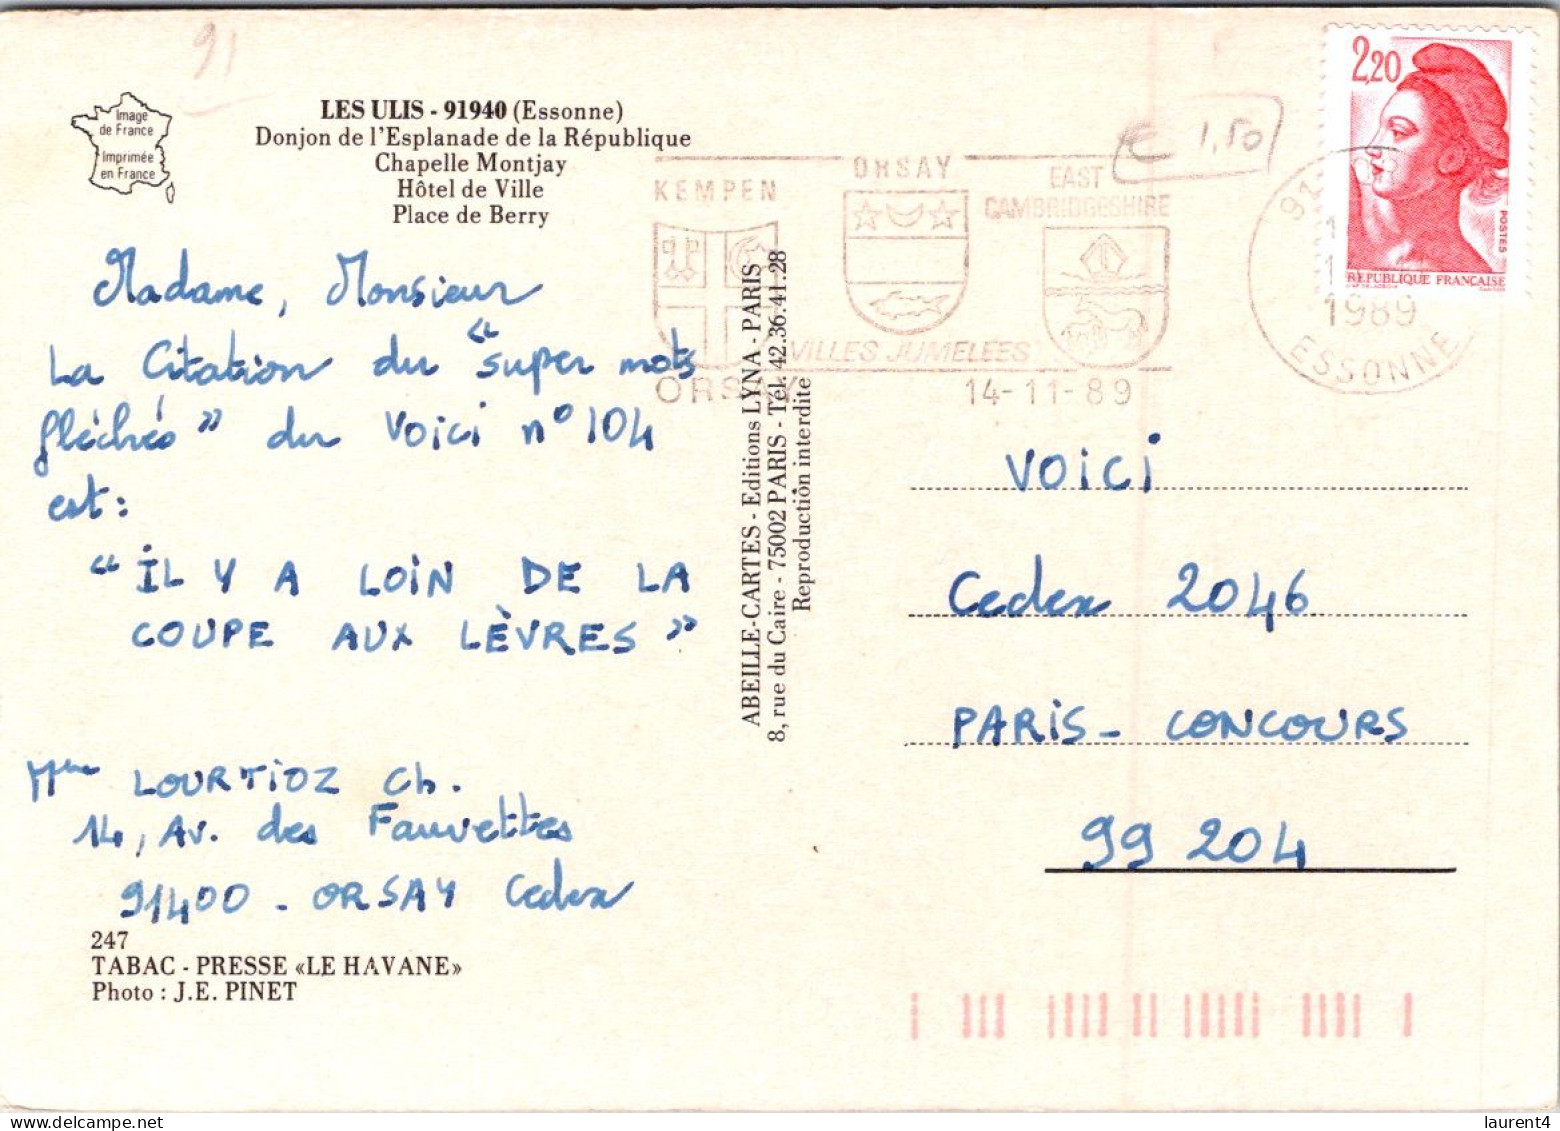 91
Image
de France
Imprimée
en France
LES ULIS - 91940 (Essonne)
Donjon de l'Esplanade de la République
Chapelle Montjay
Hôtel de Ville
Place de Berry
€ 1,50
2,20
POSTES
REPUBLIQUE FRANÇAISE
KEMPEN
ORSAY
EAST
CAMBRIDGESHIRE
VILLES JUMELEES
ORSAY
14-11-89
91
1989
ESSONNE
Madame, Monsieur
La Citation du "super mots
fléchés" du Voici n° 104
est :
"IL Y A LOIN DE LA
COUPE AUX LÈVRES"
Mme LOURTIOZ Ch.
14, Av. des Fauvettes
91400 - ORSAY Cedex
247
TABAC - PRESSE «LE HAVANE»
Photo : J.E. PINET
ABEILLE-CARTES - Editions LYNA - PARIS
8, rue du Caire - 75002 PARIS - Tél. 42.36.41.28
Reproduction interdite
VOICI
Cedex 2046
PARIS - CONCOURS
99 204
laurent4